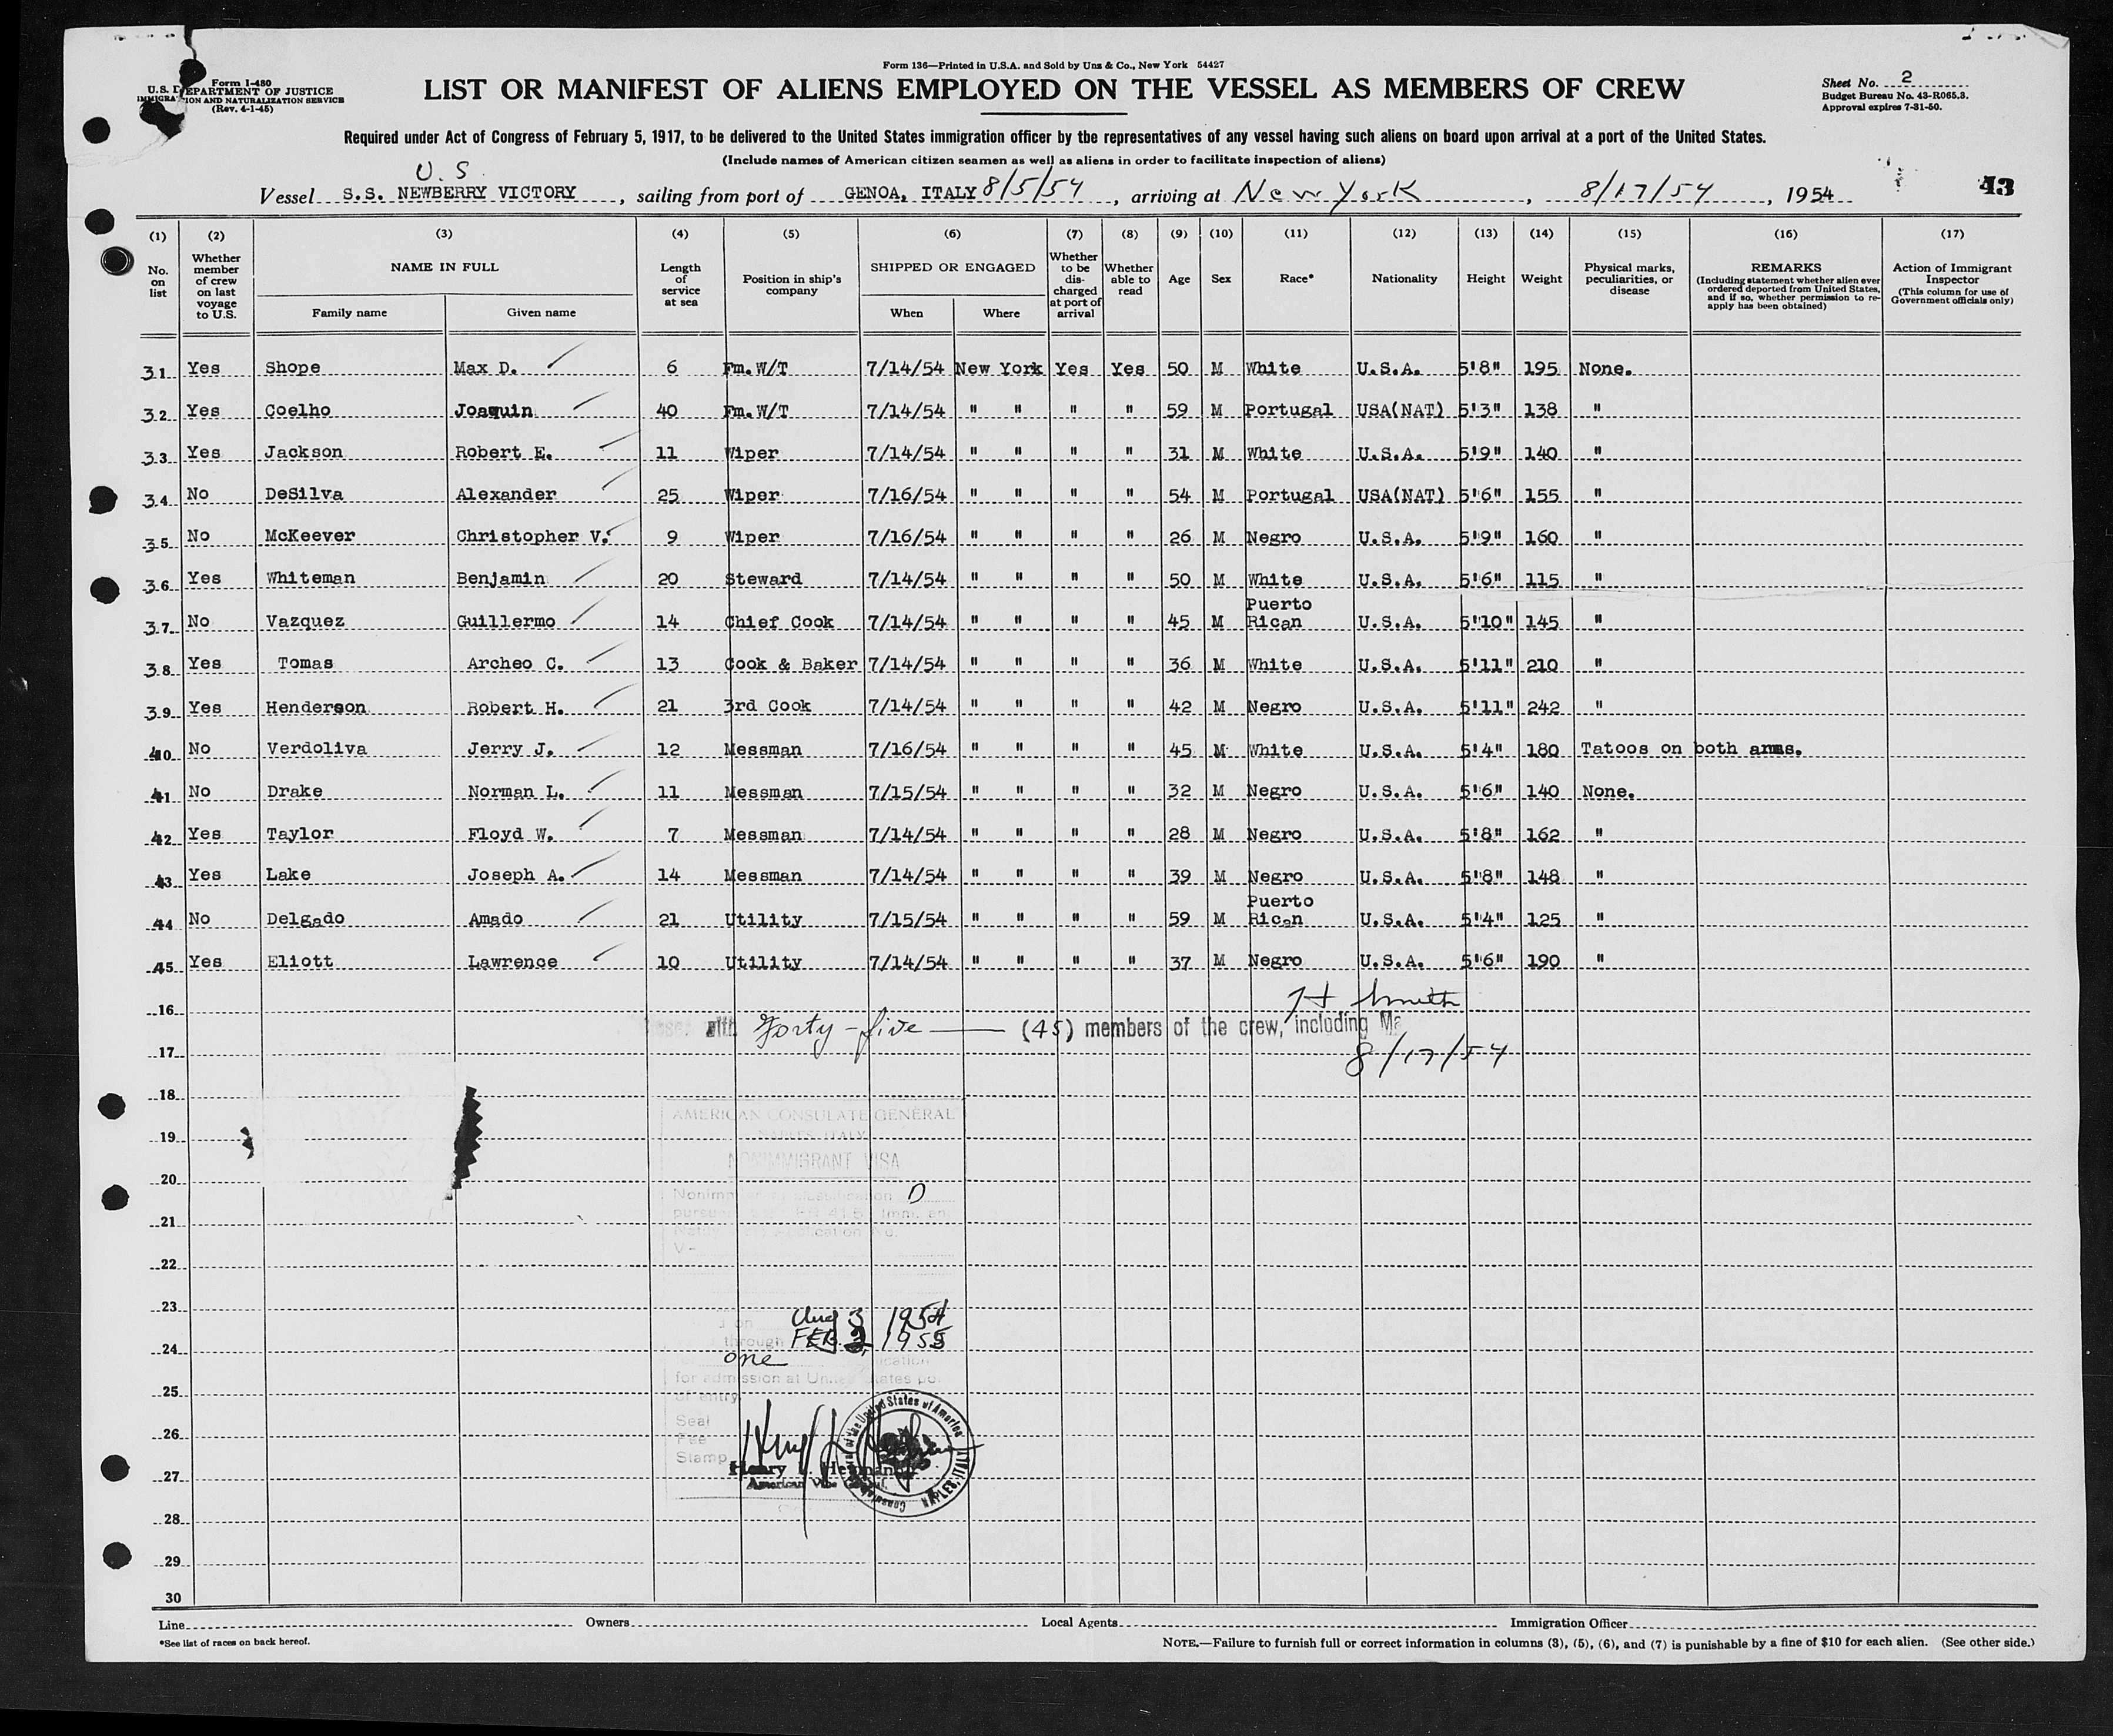 Form 136—Printed in U.S.A. and Sold by Unz & Co., New York 54427
Form I-480
U.S. DEPARTMENT OF JUSTICE
IMMIGRATION AND NATURALIZATION SERVICE
(Rev. 4-1-45)
LIST OR MANIFEST OF ALIENS EMPLOYED ON THE VESSEL AS MEMBERS OF CREW
Sheet No. 2
Budget Bureau No. 43-R065.3.
Approval expires 7-31-50.
Required under Act of Congress of February 5, 1917, to be delivered to the United States immigration officer by the representatives of any vessel having such aliens on board upon arrival at a port of the United States.
(Include names of American citizen seamen as well as aliens in order to facilitate inspection of aliens)
U.S.
Vessel S.S. NEWBERRY VICTORY, sailing from port of GENOA, ITALY 8/5/54, arriving at New York, 8/17/54, 1954
43
(1) (2) (3) (4) (5) (6) (7) (8) (9) (10) (11) (12) (13) (14) (15) (16) (17)
No. on list
Whether member of crew on last voyage to U.S.
NAME IN FULL
Family name Given name
Length of service at sea
Position in ship's company
SHIPPED OR ENGAGED
When Where
Whether to be discharged at port of arrival
Whether able to read
Age
Sex
Race*
Nationality
Height
Weight
Physical marks, peculiarities, or disease
REMARKS
(Including statement whether alien ever ordered deported from United States, and if so, whether permission to re-apply has been obtained)
Action of Immigrant Inspector
(This column for use of Government officials only)
31 Yes Shope Max D. 6 Fm.W/T 7/14/54 New York Yes Yes 50 M White U.S.A. 5'8" 195 None.
32 Yes Coelho Joaquin 40 Fm.W/T 7/14/54 " " " " 59 M Portugal USA(NAT) 5'3" 138 "
33 Yes Jackson Robert E. 11 Wiper 7/14/54 " " " " 31 M White U.S.A. 5'9" 140 "
34 No DeSilva Alexander 25 Wiper 7/16/54 " " " " 54 M Portugal USA(NAT) 5'6" 155 "
35 No McKeever Christopher V. 9 Wiper 7/16/54 " " " " 26 M Negro U.S.A. 5'9" 160 "
36 Yes Whiteman Benjamin 20 Steward 7/14/54 " " " " 50 M White U.S.A. 5'6" 115 "
37 No Vazquez Guillermo 14 Chief Cook 7/14/54 " " " " 45 M Puerto Rican U.S.A. 5'10" 145 "
38 Yes Tomas Archeo C. 13 Cook & Baker 7/14/54 " " " " 36 M White U.S.A. 5'11" 210 "
39 Yes Henderson Robert H. 21 3rd Cook 7/14/54 " " " " 42 M Negro U.S.A. 5'11" 242 "
40 No Verdoliva Jerry J. 12 Messman 7/16/54 " " " " 45 M White U.S.A. 5'4" 180 Tatoos on both arms.
41 No Drake Norman L. 11 Messman 7/15/54 " " " " 32 M Negro U.S.A. 5'6" 140 None.
42 Yes Taylor Floyd W. 7 Messman 7/14/54 " " " " 28 M Negro U.S.A. 5'8" 162 "
43 Yes Lake Joseph A. 14 Messman 7/14/54 " " " " 39 M Negro U.S.A. 5'8" 148 "
44 No Delgado Amado 21 Utility 7/15/54 " " " " 59 M Puerto Rican U.S.A. 5'4" 125 "
45 Yes Eliott Lawrence 10 Utility 7/14/54 " " " " 37 M Negro U.S.A. 5'6" 190 "
Smith
16
with Forty-five (45) members of the crew, including
17
8/17/54
18
AMERICAN CONSULATE GENERAL
19
NAPLES, ITALY
NONIMMIGRANT VISA
20
D
21
V-
22
23
Aug 3 1954
through FEB. 2, 1955
24
one
for admission at United States
25
of entry
Seal
26
Fee
Stamp
27
Henry
American Vice Consul
Consulate General of the United States of America
NAPLES, ITALY
28
29
30
Line Owners Local Agents Immigration Officer
*See list of races on back hereof.
NOTE.—Failure to furnish full or correct information in columns (3), (5), (6), and (7) is punishable by a fine of $10 for each alien. (See other side.)